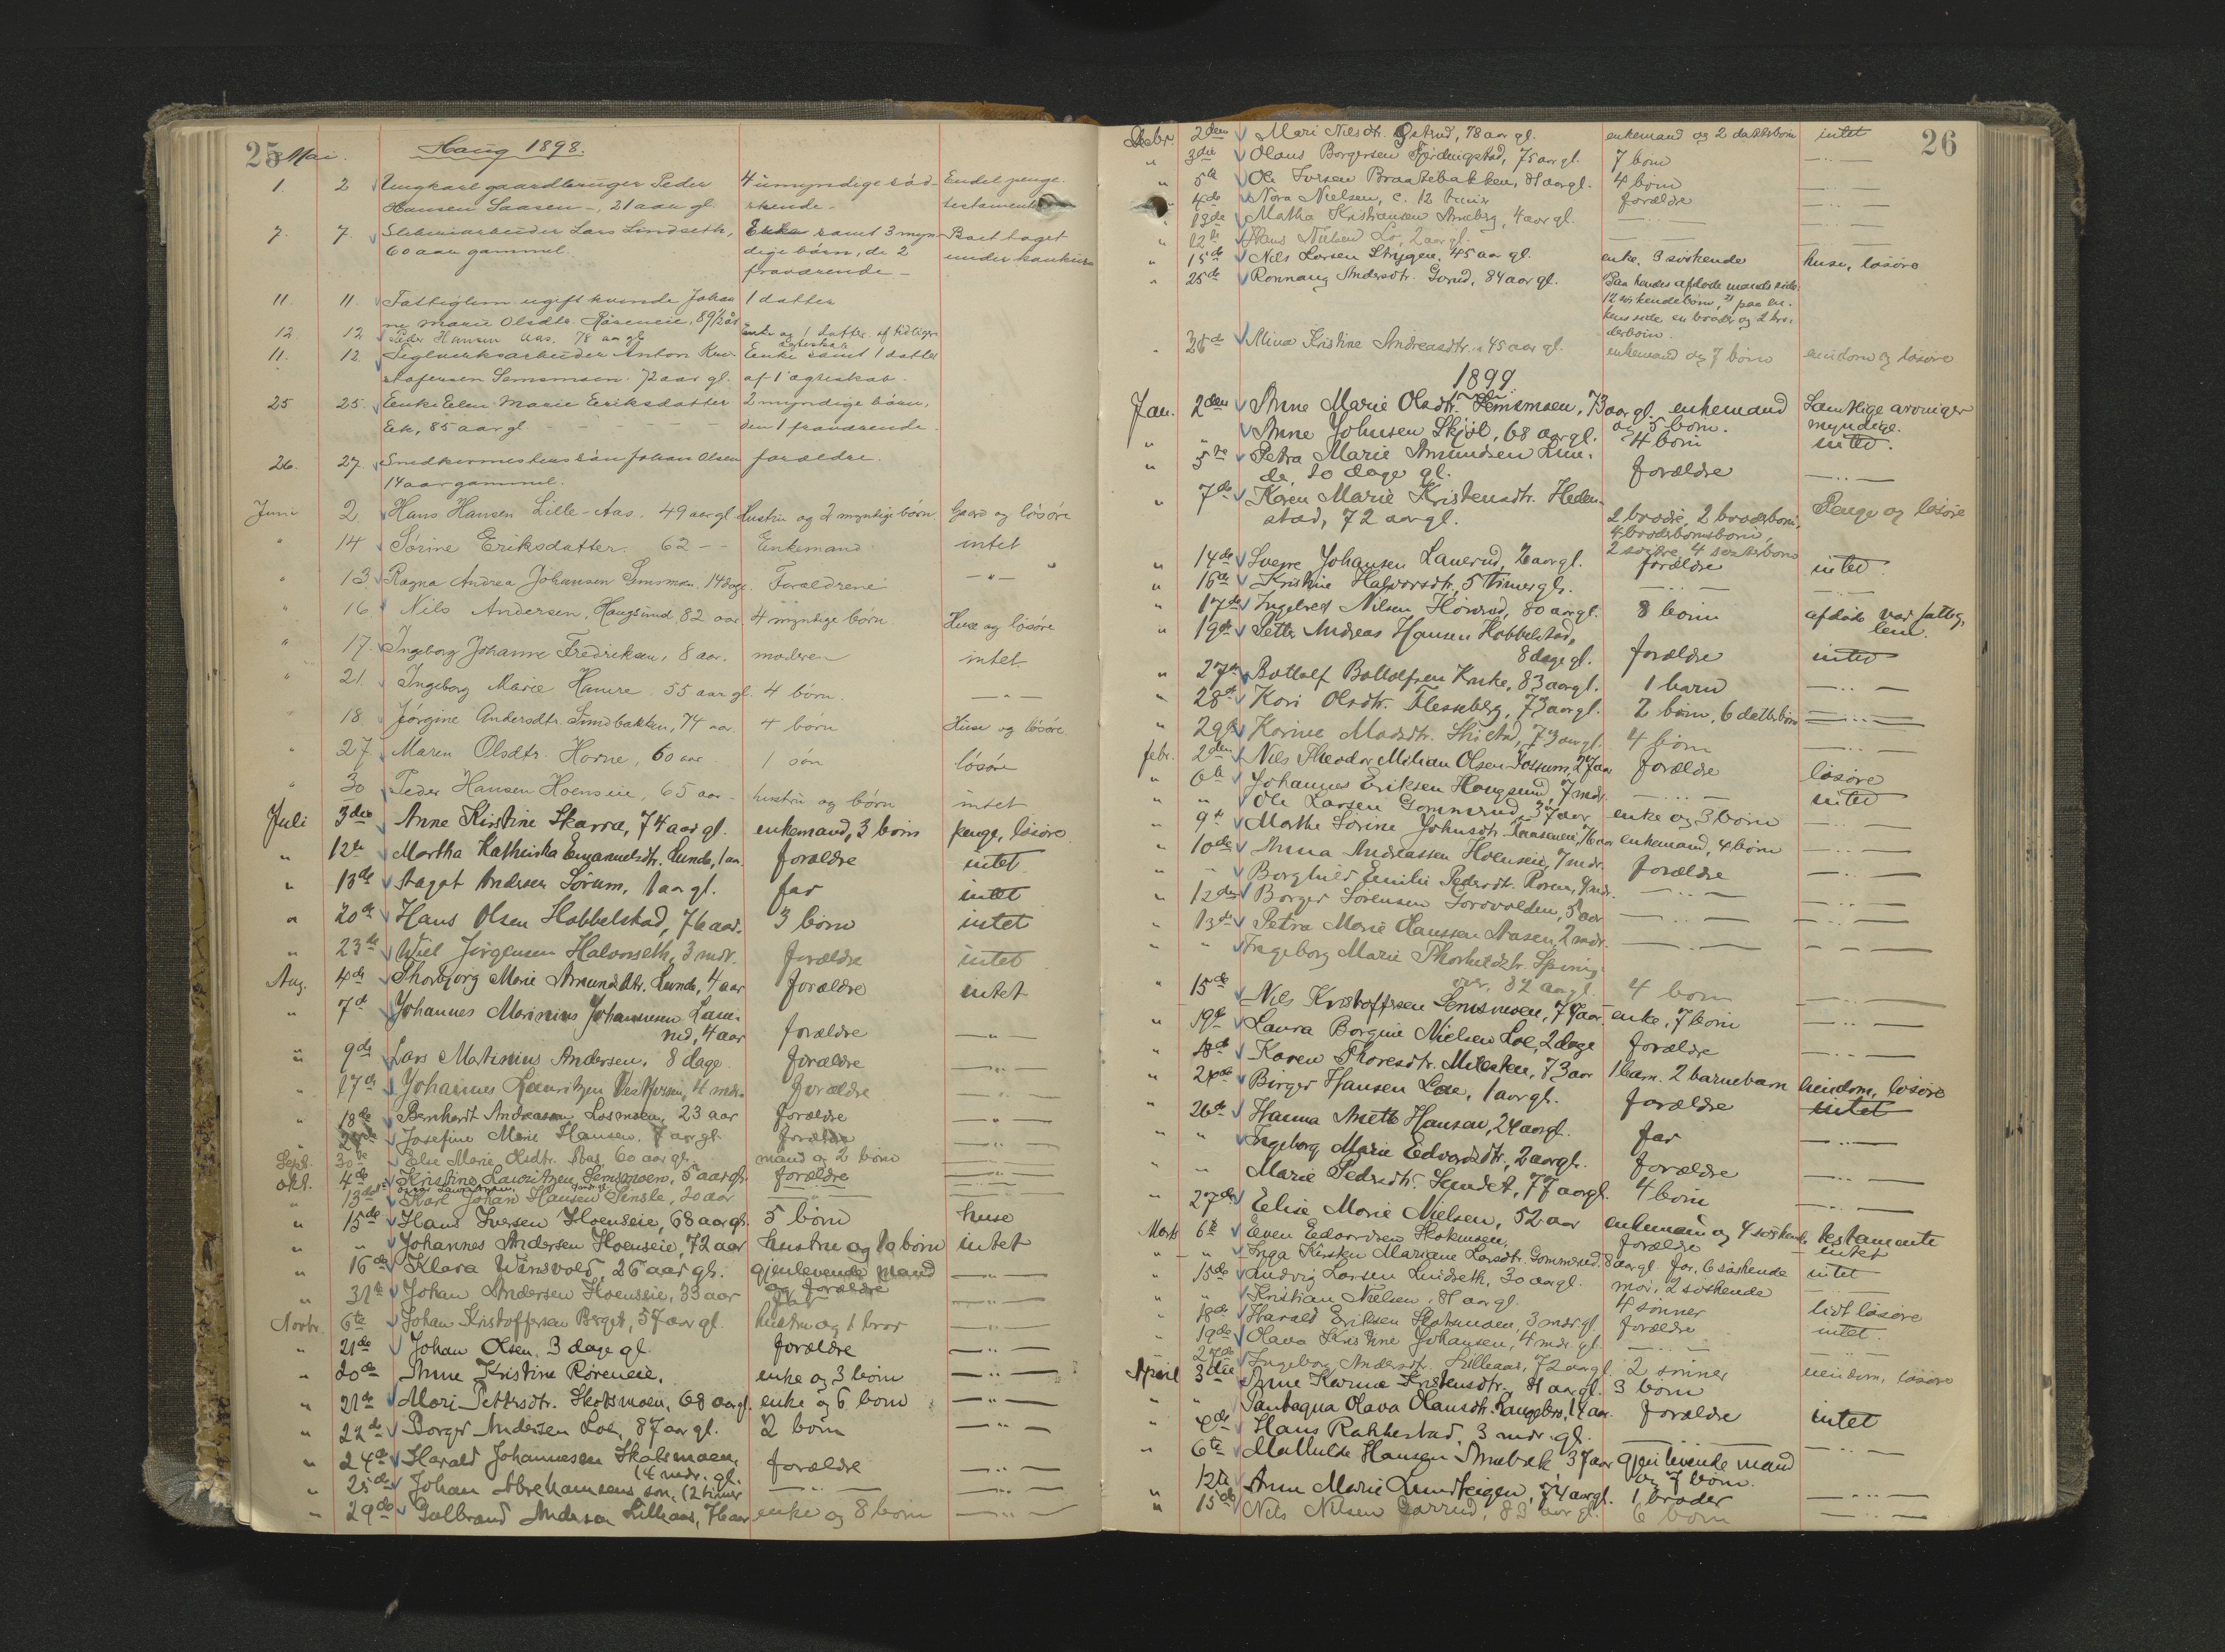 25 Mai. Haug 1898.
1. 2 Ungkarl gaardbruger Peder 4 umyndige söd- Endel penge.
Hansen Saasen -, 21 aar gl. skende - testament
7. 7. Sliberiarbeider Lars Lindseth, Enke samt 3 myn- Boet taget
60 aar gammel. dige börn, de 2 under konkurs
fraværende -
11. 11. Fattiglem ugift kvinde Johan 1 datter
ne Marie Olsdtr. Röreneie, 89½ år
12. 12 Peder Hansen Aas. 78 aar gl. Enke og 1 datter af tidligere
ægteskab
11. 12. Teglverksarbeider Anton Kri- Enke samt 1 datter
stofersen Semsmoen. 72 aar gl. af 1' ægteskab.
25 25. Enke Elen Marie Eriksdatter 2 myndige börn,
Eek, 85 aar gl. - - - - - den 1 fraværende.
26. 27. Snedkermesters sön Johan Olsen forældre.
14 aar gammel.
Juni 2. Hans Hansen Lille-Aas. 49 aar gl. Hustru og 2 myntige börn Gaard og lösöre
" 14 Sörine Eriksdatter. 62 - - Enkemand intet
" 13 Ragna Andrea Johansen Smsmoen. 14 dage. Forældrene - " -
" 16 Nils Andersen, Haugsund, 82 aar 4 myntige börn Huse og lösöre
" 17. Ingeborg Johanne Fredriksen, 8 aar. moderen intet
" 21. Ingeborg Marie Hamre. 55 aar gl. 4 börn. - " -
" 18. Jörgine Andersdtr. Sundbakken, 74 aar. 4 börn Huse og lösöre.
" 27 Maren Olsdtr. Horne, 60 aar 1 sön lösöre
" 30 Peder Hansen Hoenseie, 65 aar - hustru og börn intet
Juli 3die Anne Kirstine Skarra, 74 aar gl. enkemand, 3 börn penge, lösöre
" 12te Martha Kathinka Emanuelsdtr. Lunde, 1 aar forældre intet
" 13de Aagot Andersen Sörum, 1 aar gl. far intet
" 20de Hans Olsen Hobbelstad, 76 aar. 3 börn intet
" 23de Wiel Jörgensen Halvorseth, 3 mdr. forældre intet
Aug. 4de Thorbjorg Marie Amundsdtr. Lunde, 4 aar forældre intet
" 7de Johannes Marinius Johannesen Laue-
rud, 4 aar forældre - " -
" 9de Lars Martinius Andersen, 8 dage forældre - " -
" 17de Johannes Lauritzen Vestfossen, 4 mdr. forældre - " -
" 18de Bernhardt Andreasen Losmoen, 23 aar forældre - " -
" 27de Josefine Marie Hansen, 7 aar gl. forældre
Sept. 30te Else Marie Olsdtr. Aas 60 aar gl. mand og 2 börn
Okt. 4de Kristine Lauritzen Semsmoen, 5 aar gl. forældre
" 13de Karl Johan Hansen Tensle, 20 aar
" 15de Hans Iversen Hoenseie, 68 aar gl. 5 börn huse
" " Johannes Andersen Hoenseie, 72 aar hustru og 10 börn intet
" 16de Klara Winsvold, 26 aar gl. gjenlevende mand
og forældre - " -
" 31te Johan Andersen Hoenseie, 33 aar far - " -
Novbr. 6te Johan Kristoffersen Berget, 57 aar gl. hustru og 1 bror - " -
" 21de Johan Olsen, 3 dage gl. forældre - " -
" 20de Anne Kristine Röreneie. enke og 3 börn - " -
" 21de Mari Pettersdtr. Skotsmoen, 68 aar gl. enke og 6 börn - " -
" 22de Borger Andersen Loe, 87 aar gl. 2 börn - " -
" 24de Harald Johannesen Skotsmoen,
(4 mdr. gl. forældre - " -
" 25de Johan Abrahamsens sön, (2 timer - " - - " -
" 29de Gulbrand Andersen Lilleaas, 76 aar enke og 8 börn - " -
26
Debr. 2den Mari Nilsdtr. Gstrud, 78 aar gl. enkemand og 2 datterbörn intet
" 3die Olaus Borgersen Fjerdingstad, 75 aar gl. 7 börn - " -
" 5te Ole Iversen Braatebakken, 81 aar gl. 4 börn - " -
" 4de Nora Nielsen, c. 12 timer forældre - " -
" 13de Matha Kristiansen Arneberg, 4 aar gl. - " - - " -
" 12te Hans Nielsen Lo, 2 aar gl. - " -
" 15de Nils Larsen Strygen, 45 aar gl. enke, 3 söskende huse, lösöre
" 25de Ronnaug Andersdtr. Gorud, 84 aar gl. Paa hendes afdöde mands side
12 söskendebörn, paa en-
kens side en broder og 2 bro-
derbörn.
" 28de Mina Kristine Andreasdtr. 45 aar gl. enkemand og 7 börn eiendom og lösöre
1899.
Jan. 2den Anne Marie Olsdtr. Semsmoen, 73 aar gl. enkemand Samtlige arvinger
og 5 börn. myndige.
" " Anne Johnsen Skjöl, 68 aar gl. 4 börn intet.
" 5te Petra Marie Amundsen Lun-
de, 10 dage gl. forældre - " -
" 7de Karen Marie Kristensdtr. Heden-
stad, 72 aar gl. 2 brödre, 2 broderbörn, Penge og lösöre
4 broderbornsbörn,
2 söstre, 4 sösterbörn
" 14de Sverre Johansen Lauerud, 2 aar gl. forældre intet
" 16de Kristine Halvorsdtr, 5 timer gl. - " - - " -
" 17de Ingebret Nilsen Hönrud, 80 aar gl. 8 börn afdöde var fattig-
lem.
" 19de Petter Andreas Hansen Hobbelstad,
8 dage gl. forældre intet
" 27de Bottolf Bottolfsen Kruke, 83 aar gl. 1 barn - " -
" 28de Kari Olsdtr. Flesseberg, 73 aar gl. 2 börn, 6 datterbörn - " -
" 29de Karine Madsdtr. Skistad, 73 aar gl. 4 börn - " -
Febr. 2den Nils Theodor Milian Olsen Fossum, 27 aar forældre lösöre
" 6te Johannes Eriksen Haugsund, 7 mdr. - " - intet
" " Ole Larsen Gommerud, 37 aar enke og 3 börn - " -
" 9de Marthe Sörine Johnsdtr. Teneneie, 76 aar enkemand, 4 börn - " -
" 10de Anna Andreassen Hoenseie, 7 mdr. forældre - " -
" " Borghild Emilie Pedersdtr. Roren, 9 mdr. - " -
" 12den Borger Sörensen Torsvolden, 5 aar - " - - " -
" 13de Petra Marie Clausen Aasen, 2 mdr. - " - - " -
" " Ingeborg Marie Thorkildstr. Spernig-
over, 82 aar gl. 4 börn - " -
" 15de Nils Kristoffersen Semsmoen, 77 aar. enke, 7 börn - " -
" 19de Laura Borgine Nielsen Loe, 2 dage forældre - " -
" 18de Karen Thoresdtr. Milesten, 73 aar 1 barn. 2 barnebarn eiendom, lösöre
" 24de Birger Hansen Loe, 1 aar gl. forældre intet
" 26de Hanna Anette Hansen, 24 aar gl. far - " -
" " Ingeborg Marie Edvardsdtr, 2 aar gl. forældre - " -
" " Marie Pedersdtr. Sundet, 77 aar gl. 4 börn - " -
" 27de Elise Marie Nielsen, 52 aar enkemand og 4 söskende testamente
Marts 6te Even Edvardsen Skotsmoen, forældre intet
" " Inga Kirsten Mariane Larsdtr. Gommerud, 8 aar gl. far, 6 söskende intet
" 15de Ludvig Larsen Lindseth, 30 aar gl. mor, 2 söskende
" " Kristian Nielsen, 81 aar gl. 4 sönner lidt lösöre
" 18de Harald Eriksen Skotsmoen, 3 mdr. gl. forældre intet
" 19de Olava Kristine Johansen, 4 mdr. gl. - " -
" 27de Ingeborg Andersdtr. Lilleaas, 72 aar gl. 2 sönner eiendom, lösöre
April 3die Anne Karine Kristensdtr. 81 aar gl. 3 börn
" " Olava Olausdtr. Langebro, 14 aar. forældre intet
" 4de Hans Rakkestad, 3 mdr. gl.
" 6te Mathilde Hansen Smebæk 37 aar gjenlevende mand
og 7 börn.
" 12te Anne Marie Lundteigen, 74 aar gl. 1 broder - " -
" 15de Nils Nilsen Garrud, 83 aar gl. 6 börn - " -